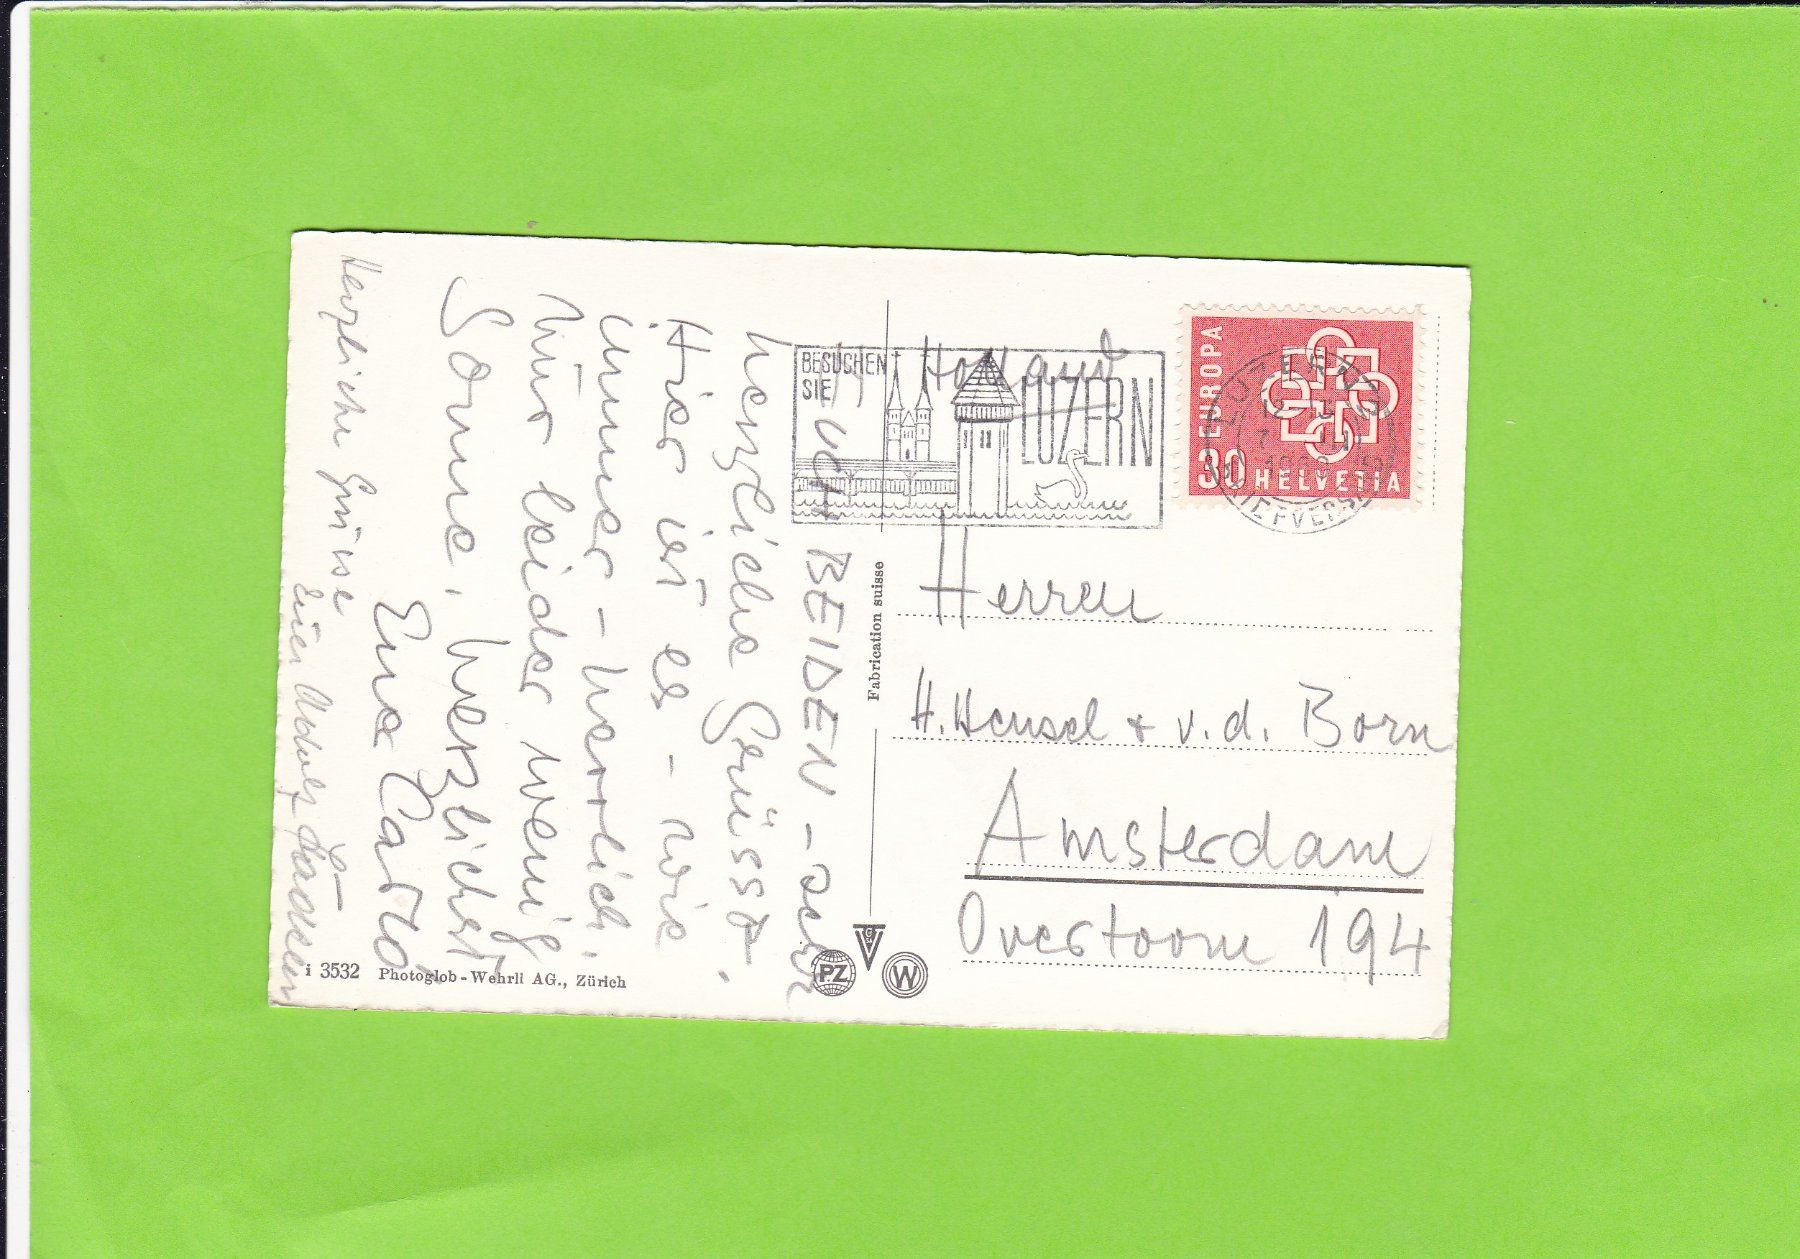 EUCH BEIDEN - sehr
herzliche Grüsse.
Hier ist es - wie
immer - herrlich.
Nur leider wenig
Sonne. Herzlichst
Eure Carlo
Herzliche Grüsse
Euer
BESUCHEN
SIE
LUZERN
Holland
EUROPA
30 HELVETIA
LUZERN
BRIEFVERSAND
Fabrication suisse
Herren
H. Hensel + v.d. Born
Amsterdam
Overtoom 194
i 3532 Photoglob-Wehrli AG., Zürich
PZ
W